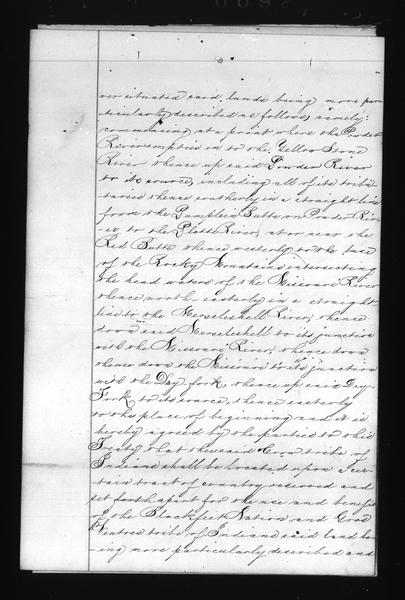 ver situated said lands being more par
ticularly described as follows, namely:
commencing at a point where the Powder
River empties in to the Yellow Stone
River thence up said Powder River
to its source, including all of its tribu-
taries thence southerly in a straight line
from the Pumpkin Butte on Powder Riv-
er to the Platte River, at or near the
Red Butte thence westerly to the base
of the Rocky Mountains intersecting
the head waters of the Missouri River
thence north easterly in a straight
line to the River, thence
down said to its junction
with the Missouri River, thence down
thence down the Missouri to its junction
with the Dry fork thence up said Dry
Fork to its source, thence easterly
to the place of beginning and it is
hereby agreed by the parties to this
Treaty that the said Crow tribe of
Indians shall be located upon a cer-
tain tract of country reserved and
set forth apart for the use and benefit
of the Blackfeet Nation and Gros
Ventres tribe of Indians said land be-
ing more particularly described and